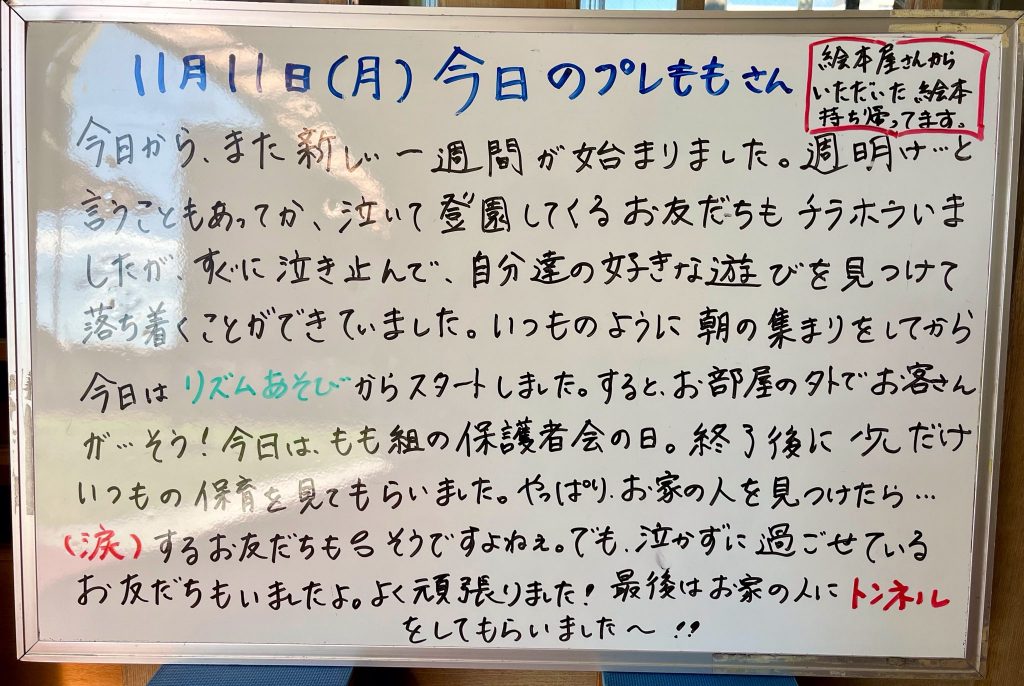 11月11日(月)今日のプレももさん
絵本屋さんから
いただいた絵本
持ち帰ってます。
今日から、また新しい一週間が始まりました。週明け…と
言うこともあってか、泣いて登園してくるお友だちもチラホラいま
したが、すぐに泣き止んで、自分達の好きな遊びを見つけて
落ち着くことができていました。いつものように朝の集まりをしてから
今日はリズムあそびからスタートしました。すると、お部屋の外でお客さん
が…そう!今日は、もも組の保護者会の日。終了後に少しだけ
いつもの保育を見てもらいました。やっぱり、お家の人を見つけたら…
(涙)するお友だちも そうですよねぇ。でも、泣かずに過ごせている
お友だちもいましたよ。よく頑張りました!最後はお家の人にトンネル
をしてもらいました〜!!